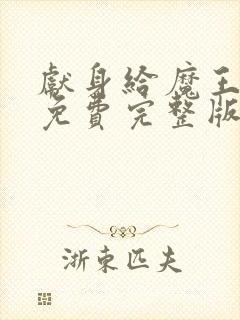 獻身給魔王
免費完整版
浙東匹夫